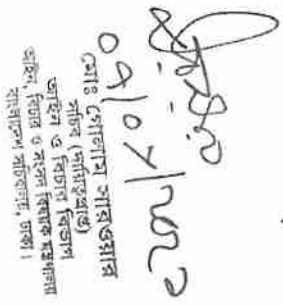 মোঃ গোলাম সারওয়ার
সচিব (দায়িত্বপ্রাপ্ত)
আইন ও বিচার বিভাগ
আইন, বিচার ও সংসদ বিষয়ক মন্ত্রণালয়
বাংলাদেশ সচিবালয়, ঢাকা।